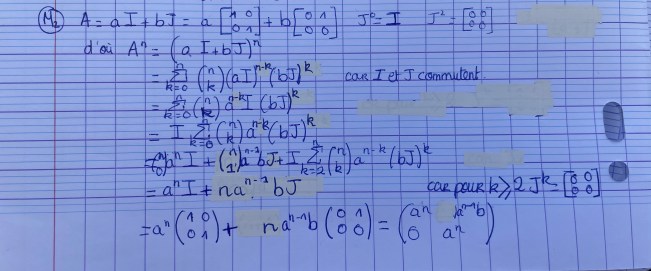 M2 A = a I + b J = a [1 0 0 1] + b [0 1 0 0] J⁰ = I J² = [0 0 0 0]
d'où Aⁿ = (a I + b J)ⁿ
= Σ_{k=0}^{n} (n k) (aI)^{n-k} (bJ)^k car I et J commutent
= Σ_{k=0}^{n} (n k) a^{n-k} I (bJ)^k
= I Σ_{k=0}^{n} (n k) a^{n-k} (bJ)^k
= (n 0) aⁿ I + (n 1) a^{n-1} b J + I Σ_{k=2}^{n} (n k) a^{n-k} (bJ)^k
= aⁿ I + n a^{n-1} b J car pour k ≥ 2 J^k = [0 0 0 0]
= aⁿ (1 0 0 1) + n a^{n-1} b (0 1 0 0) = (aⁿ a^{n-1} b 0 aⁿ)